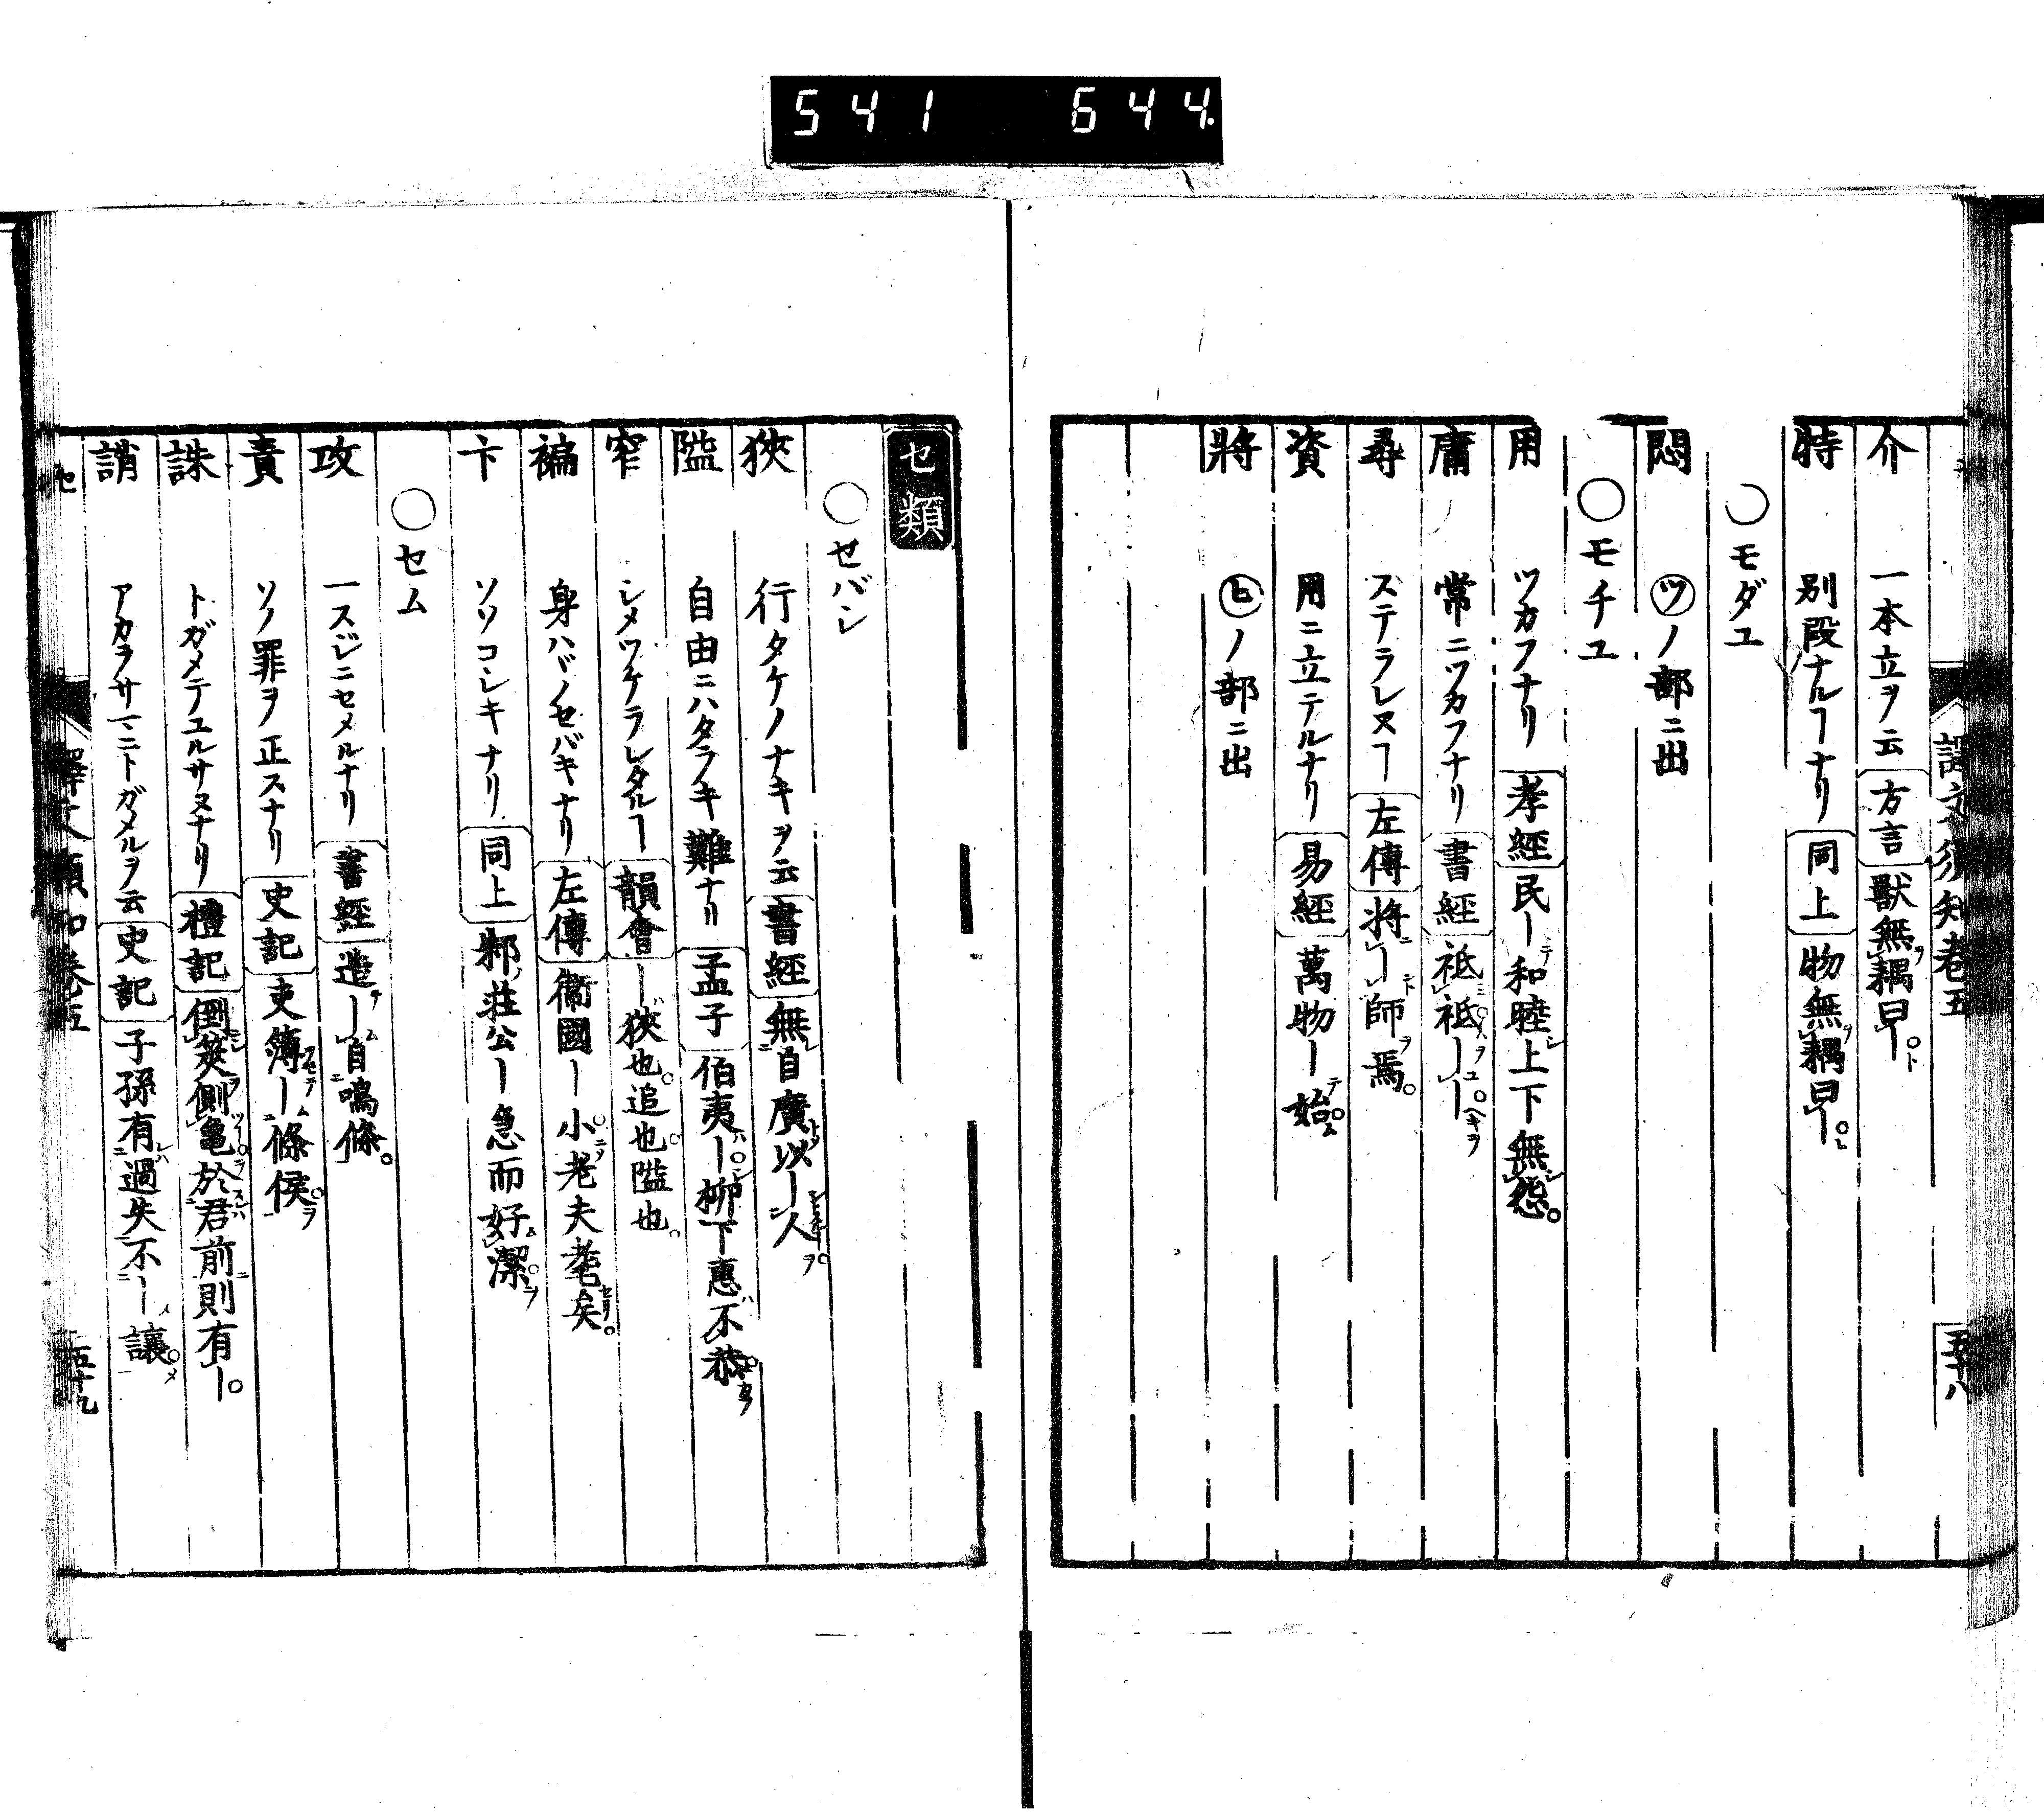 541 644.
譯文須知卷五 五十八
介 一本立ヲ云 方言 獸無耦曰ー
特 別段ナルヿナリ 同上 物無耦曰ー
○モダユ
悶 ツノ部ニ出
○モチユ
用 ツカフナリ 孝經 民ー和睦上下無怨
庸 常ニツカフナリ 書經 祗祗ーー
尋 ステラレヌヿ 左傳 將ー師焉
資 用ニ立テルナリ 易經 萬物ー始
將 ヒノ部ニ出
セ類
○セバシ
狹 行タケノナキヲ云 書經 無自廣以ー人
隘 自由ニハタラキ難ナリ 孟子 伯夷ー柳下惠不恭
窄 シメツケラレタルヿ 韻會 ー狹也追也隘也
褊 身ハヾノセバキナリ 左傳 衞國ー小老夫耄矣
卞 ソソコシキナリ 同上 邾莊公ー急而好潔
○セム
攻 一スジニセメルナリ 書經 造ー自鳴條
責 ソノ罪ヲ正スナリ 史記 吏簿ー條侯
誅 トガメテユルサヌナリ 禮記 倒筴側龜於君前則有ー
誚 アカラサマニトガメルヲ云 史記 子孫有過失不ー讓
セ 譯文須知卷五 五十九